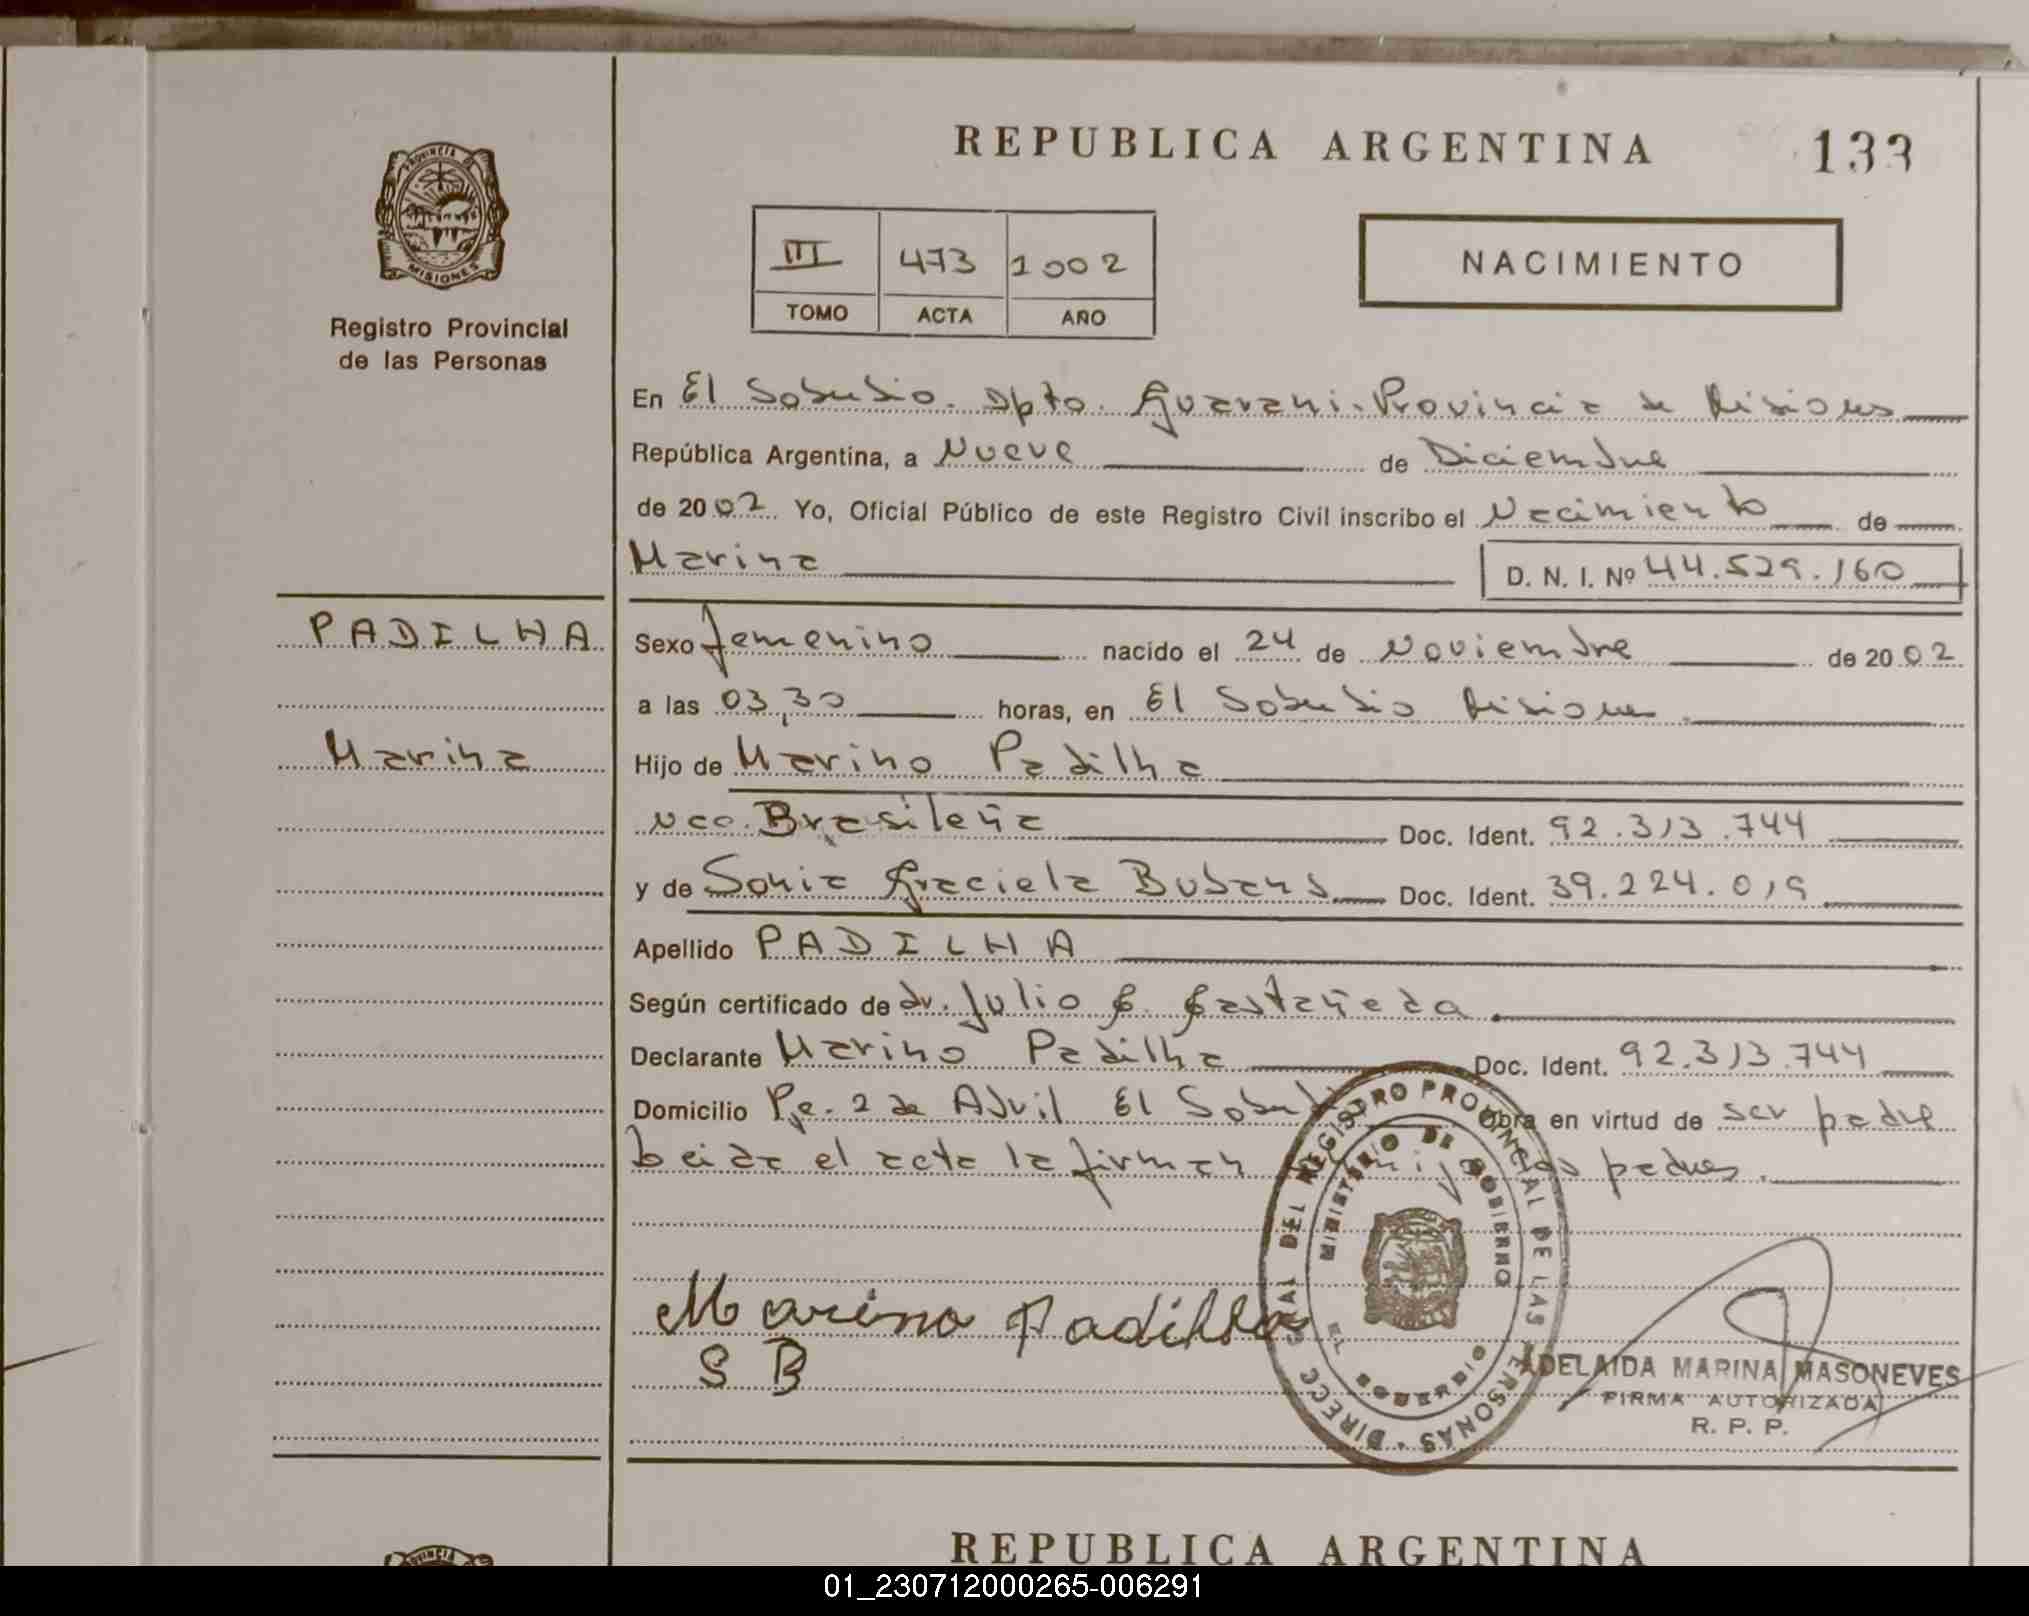 REPUBLICA ARGENTINA 133
PROVINCIA DE
MISIONES
Registro Provincial
de las Personas
III 473 2002
TOMO ACTA AÑO
NACIMIENTO
En El Soberbio. Dpto. Guarani. Provincia de Misiones
República Argentina, a Nueve de Diciembre
de 2002 Yo, Oficial Público de este Registro Civil inscribo el Nacimiento de
Marina D. N. I. Nº 44.529.160
PADILHA
Marina
Sexo femenino nacido el 24 de Noviembre de 2002
a las 03,30 horas, en El Soberbio Misiones
Hijo de Marino Padilha
nac. Brasileña Doc. Ident. 92.313.744
y de Sonia Graciela Bubans Doc. Ident. 39.224.019
Apellido PADILHA
Según certificado de dr. Julio C. Castañeda
Declarante Marino Padilha Doc. Ident. 92.313.744
Domicilio Pje. 2 de Abril El Soberbio Obra en virtud de ser padre
Leida el acta la firman conmigo los padres.
Marino Padilha
S B
DIRECC GRAL DEL REGISTRO PROVINCIAL DE LAS PERSONAS
MINISTERIO DE GOBIERNO
EL SOBERBIO
ADELAIDA MARINA MASONEVES
FIRMA AUTORIZADA
R. P. P.
REPUBLICA ARGENTINA
01_230712000265-006291